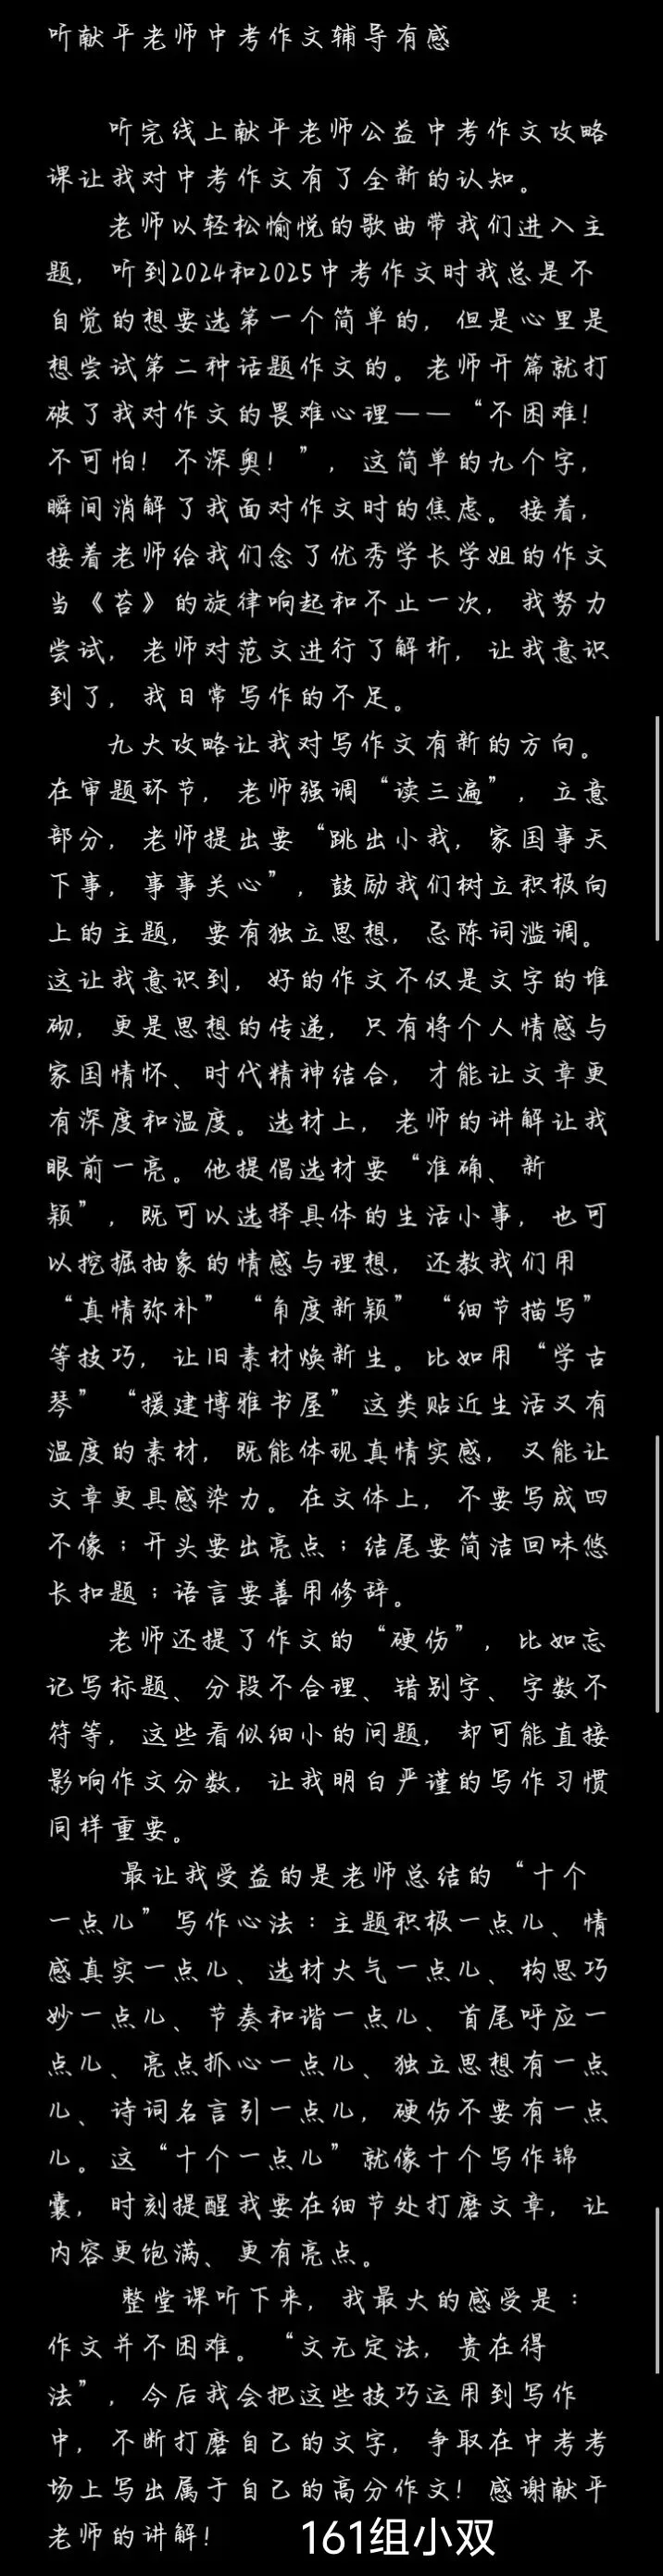 听献平老师中考作文辅导有感
听完线上献平老师公益中考作文攻略
课让我对中考作文有了全新的认知。
老师以轻松愉悦的歌曲带我们进入主
题，听到2024和2025中考作文时我总是不
自觉的想要选第一个简单的，但是心里是
想尝试第二种话题作文的。老师开篇就打
破了我对作文的畏难心理——“不困难！
不可怕！不深奥！”，这简单的九个字，
瞬间消解了我面对作文时的焦虑。接着，
接着老师给我们念了优秀学长学姐的作文
当《苔》的旋律响起和不止一次，我努力
尝试，老师对范文进行了解析，让我意识
到了，我日常写作的不足。
九大攻略让我对写作文有新的方向。
在审题环节，老师强调“读三遍”，立意
部分，老师提出要“跳出小我，家国事天
下事，事事关心”，鼓励我们树立积极向
上的主题，要有独立思想，忌陈词滥调。
这让我意识到，好的作文不仅是文字的堆
砌，更是思想的传递，只有将个人情感与
家国情怀、时代精神结合，才能让文章更
有深度和温度。选材上，老师的讲解让我
眼前一亮。他提倡选材要“准确、新
颖”，既可以选择具体的生活小事，也可
以挖掘抽象的情感与理想，还教我们用
“真情弥补”“角度新颖”“细节描写”
等技巧，让旧素材焕新生。比如用“学古
琴”“援建博雅书屋”这类贴近生活又有
温度的素材，既能体现真情实感，又能让
文章更具感染力。在文体上，不要写成四
不像；开头要出亮点；结尾要简洁回味悠
长扣题；语言要善用修辞。
老师还提了作文的“硬伤”，比如忘
记写标题、分段不合理、错别字、字数不
符等，这些看似细小的问题，却可能直接
影响作文分数，让我明白严谨的写作习惯
同样重要。
最让我受益的是老师总结的“十个
一点儿”写作心法：主题积极一点儿、情
感真实一点儿、选材大气一点儿、构思巧
妙一点儿、节奏和谐一点儿、首尾呼应一
点儿、亮点抓心一点儿、独立思想有一点
儿、诗词名言引一点儿，硬伤不要有一点
儿。这“十个一点儿”就像十个写作锦
囊，时刻提醒我要在细节处打磨文章，让
内容更饱满、更有亮点。
整堂课听下来，我最大的感受是：
作文并不困难。“文无定法，贵在得
法”，今后我会把这些技巧运用到写作
中，不断打磨自己的文字，争取在中考考
场上写出属于自己的高分作文！感谢献平
老师的讲解！
161组小双